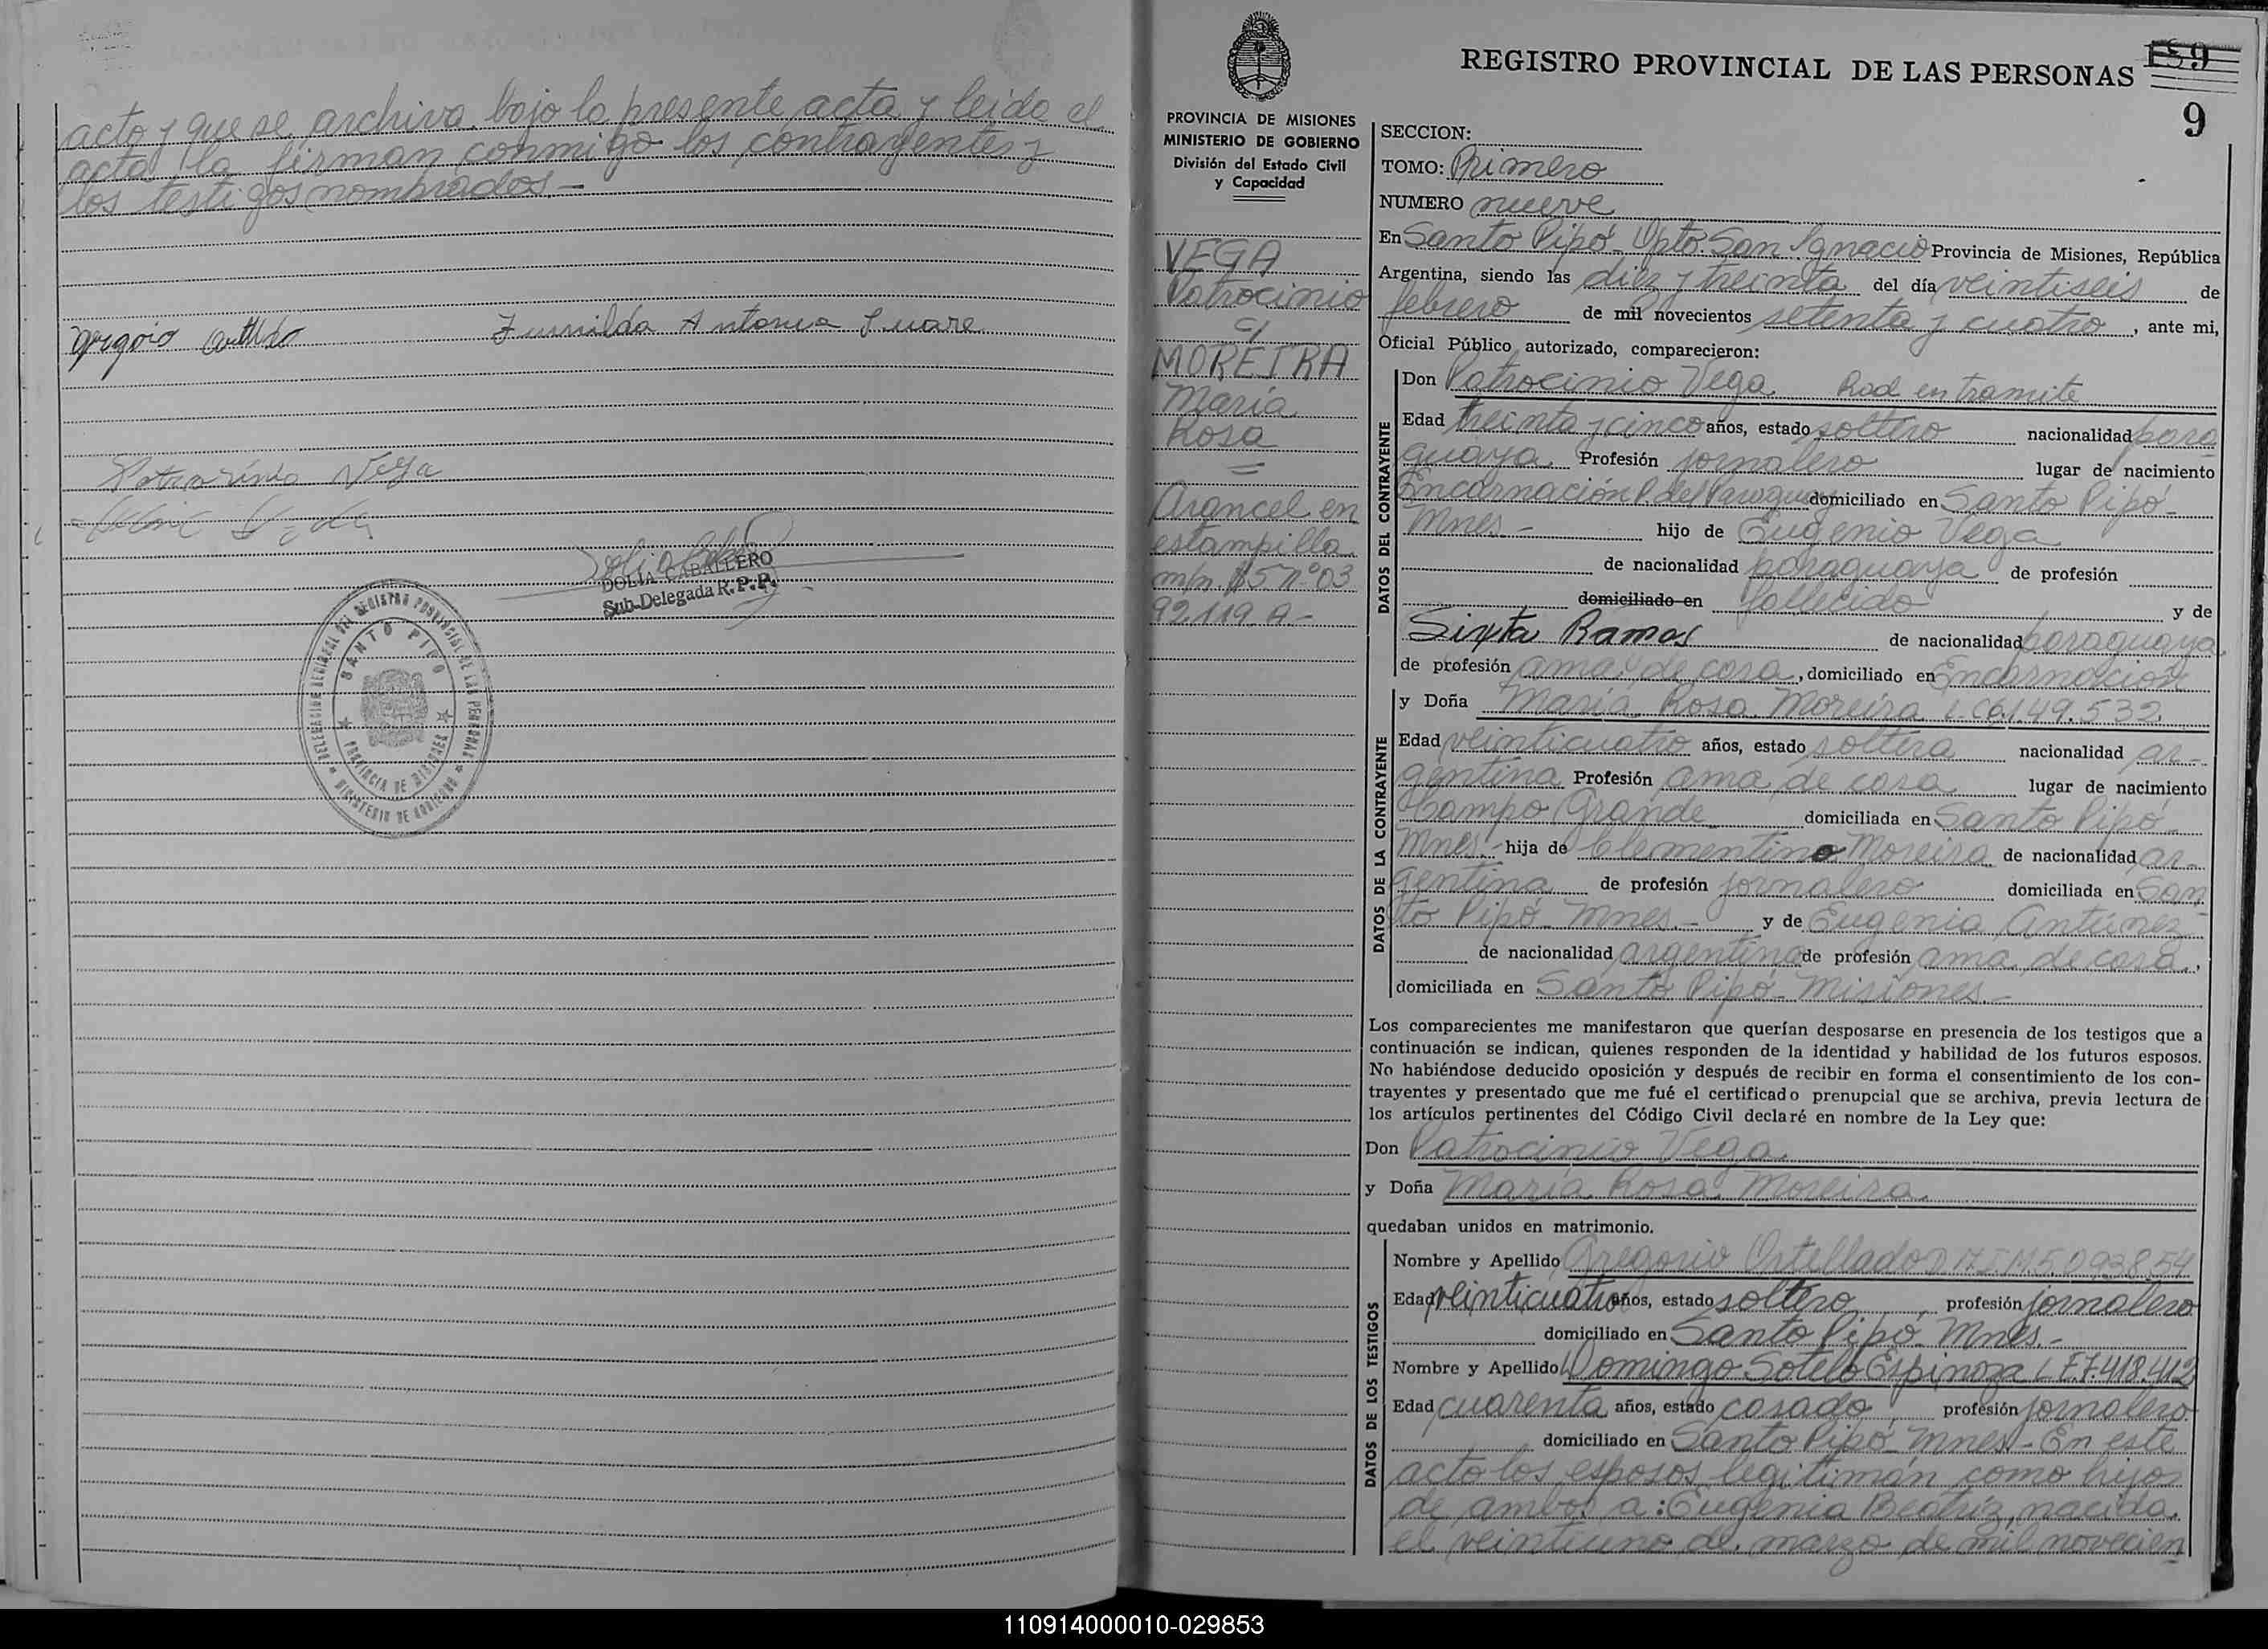 acto y que se archiva bajo la presente acta y leida el
acta la firman conmigo los contrayentes y
los testigos nombrados.-
Zunilda Antonia Suare
Patrocinio Vega
DOLIA CABALLERO
Sub-Delegada R.P.P.
SANTO PIPO
PROVINCIA DE MISIONES
MINISTERIO DE GOBIERNO
REGISTRO PROVINCIAL DE LAS PERSONAS
159
9
PROVINCIA DE MISIONES
MINISTERIO DE GOBIERNO
División del Estado Civil
y Capacidad
VEGA
Patrocinio
c/
MOREIRA
María
Rosa
=
Arancel en
estampilla
m/n. $5 nº 03
92.119 A-
SECCION:
TOMO: Primero
NUMERO nueve
En Santo Pipó-Dpto. San Ignacio Provincia de Misiones, República
Argentina, siendo las diez y treinta del día veintiseis de
febrero de mil novecientos setenta y cuatro, ante mi,
Oficial Público autorizado, comparecieron:
DATOS DEL CONTRAYENTE
Don Patrocinio Vega Rad en tramite
Edad treinta y cinco años, estado soltero nacionalidad para
guaya Profesión jornalero lugar de nacimiento
Encarnación P. del Paraguay domiciliado en Santo Pipó-
Mnes.- hijo de Eugenio Vega
de nacionalidad paraguaya de profesión
domiciliado en fallecido y de
Sixta Ramos de nacionalidad paraguaya
de profesión ama de casa, domiciliado en Encarnación
DATOS DE LA CONTRAYENTE
y Doña María Rosa Moreira L.C 6.149.532
Edad veinticuatro años, estado soltera nacionalidad ar-
gentina Profesión ama de casa lugar de nacimiento
Campo Grande domiciliada en Santo Pipó-
Mnes.- hija de Clementino Moreira de nacionalidad ar-
gentina de profesión jornalero domiciliada en San
to Pipó-Mnes.- y de Eugenia Antúnez
de nacionalidad argentina de profesión ama de casa,
domiciliada en Santo Pipó-Misiones.-
Los comparecientes me manifestaron que querían desposarse en presencia de los testigos que a
continuación se indican, quienes responden de la identidad y habilidad de los futuros esposos.
No habiéndose deducido oposición y después de recibir en forma el consentimiento de los con-
trayentes y presentado que me fué el certificado prenupcial que se archiva, previa lectura de
los artículos pertinentes del Código Civil declaré en nombre de la Ley que:
Don Patrocinio Vega
y Doña María Rosa Moreira
quedaban unidos en matrimonio.
DATOS DE LOS TESTIGOS
Nombre y Apellido Gregorio Ortellado
Edad veinticuatro años, estado soltero profesión jornalero
domiciliado en Santo Pipó Mnes.-
Nombre y Apellido Domingo Sotelo Espinoza L.E.7.418.412
Edad cuarenta años, estado casado, profesión jornalero
domiciliado en Santo Pipó-Mnes-En este
acto los esposos legitiman como hijos
de ambos a: Eugenia Beatriz, nacida
el veintiuno de marzo de mil novecien
110914000010-029853